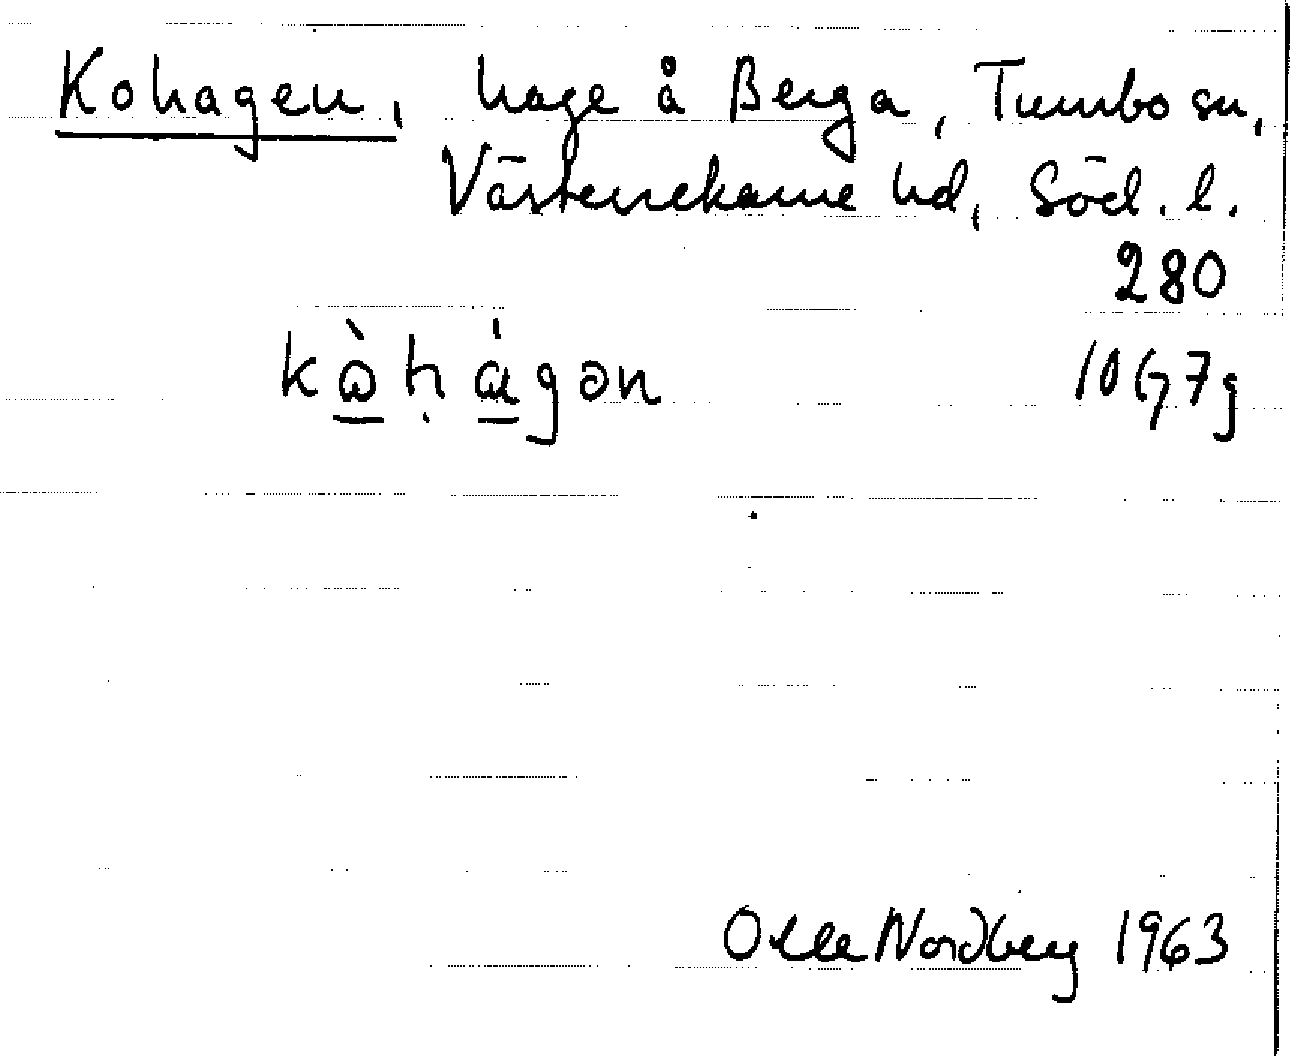 Kohagen, hage å Berga, Tumbo sn,
Västerrekarne hd, Söd. l.
280
kὼh̩ágən 10G7g
Olle Nordberg 1963